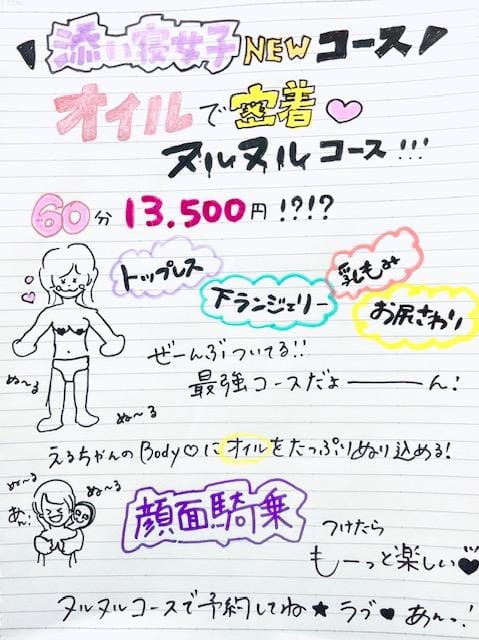 添い寝女子 NEW コース
オイルで密着♡
ヌルヌルコース!!!
60分 13.500円!?!?
トップレス
下ランジェリー
乳もみ
お尻さわり
ぜーんぶついてる!!
最強コースだよーーん!
ぬ〜る
ぬ〜る
えるちゃんのBody♡にオイルをたっぷりぬり込める!
ぬ〜る
ぬ〜る
あん!
顔面騎乗
つけたら
もーっと楽しい♥
ヌルヌルコースで予約してね★ラブ♥あんっ!